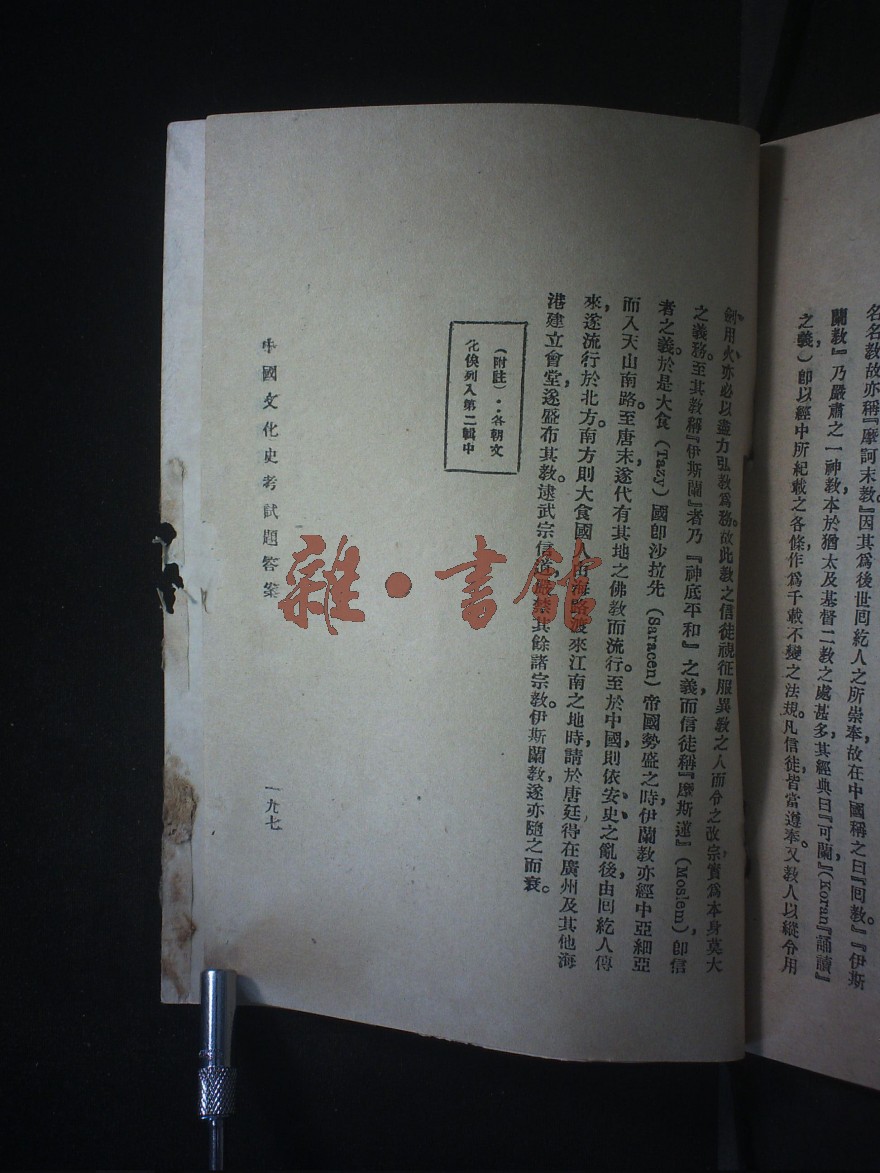 名名教故亦稱『摩訶末教』因其爲後世囘紇人之所崇奉故在中國稱之曰『囘教』『伊斯
蘭教』乃嚴肅之一神教本於猶太及基督二教之處甚多其經典曰『可蘭』(Koran『誦讀』
之義)卽以經中所紀載之各條作爲千載不變之法規。凡信徒皆當遵奉。又教人以縱令用
劍、用火、亦必以盡力弘教爲務。故此教之信徒視征服異教之人而令之改宗實爲本身莫大
之義務。至其教稱『伊斯蘭』者乃『神底平和』之義而信徒稱『摩斯速』(Moslem)卽信
者之義。於是大食(Tazy)國卽沙拉先(Saracen)帝國勢盛之時伊蘭教亦經中亞細亞
而入天山南路。至唐末遂代有其地之佛教而流行。至於中國則依安史之亂後由囘紇人傳
來遂流行於北方。南方則大食國人由海路渡來江南之地時請於唐廷得在廣州及其他海
港建立會堂遂盛布其教。逮武宗信道嚴禁其餘諸宗教。伊斯蘭教遂亦隨之而衰。
(附註)··各朝文
化俟列入第二輯中
中國文化史考試題答案
一九七
雜·書館